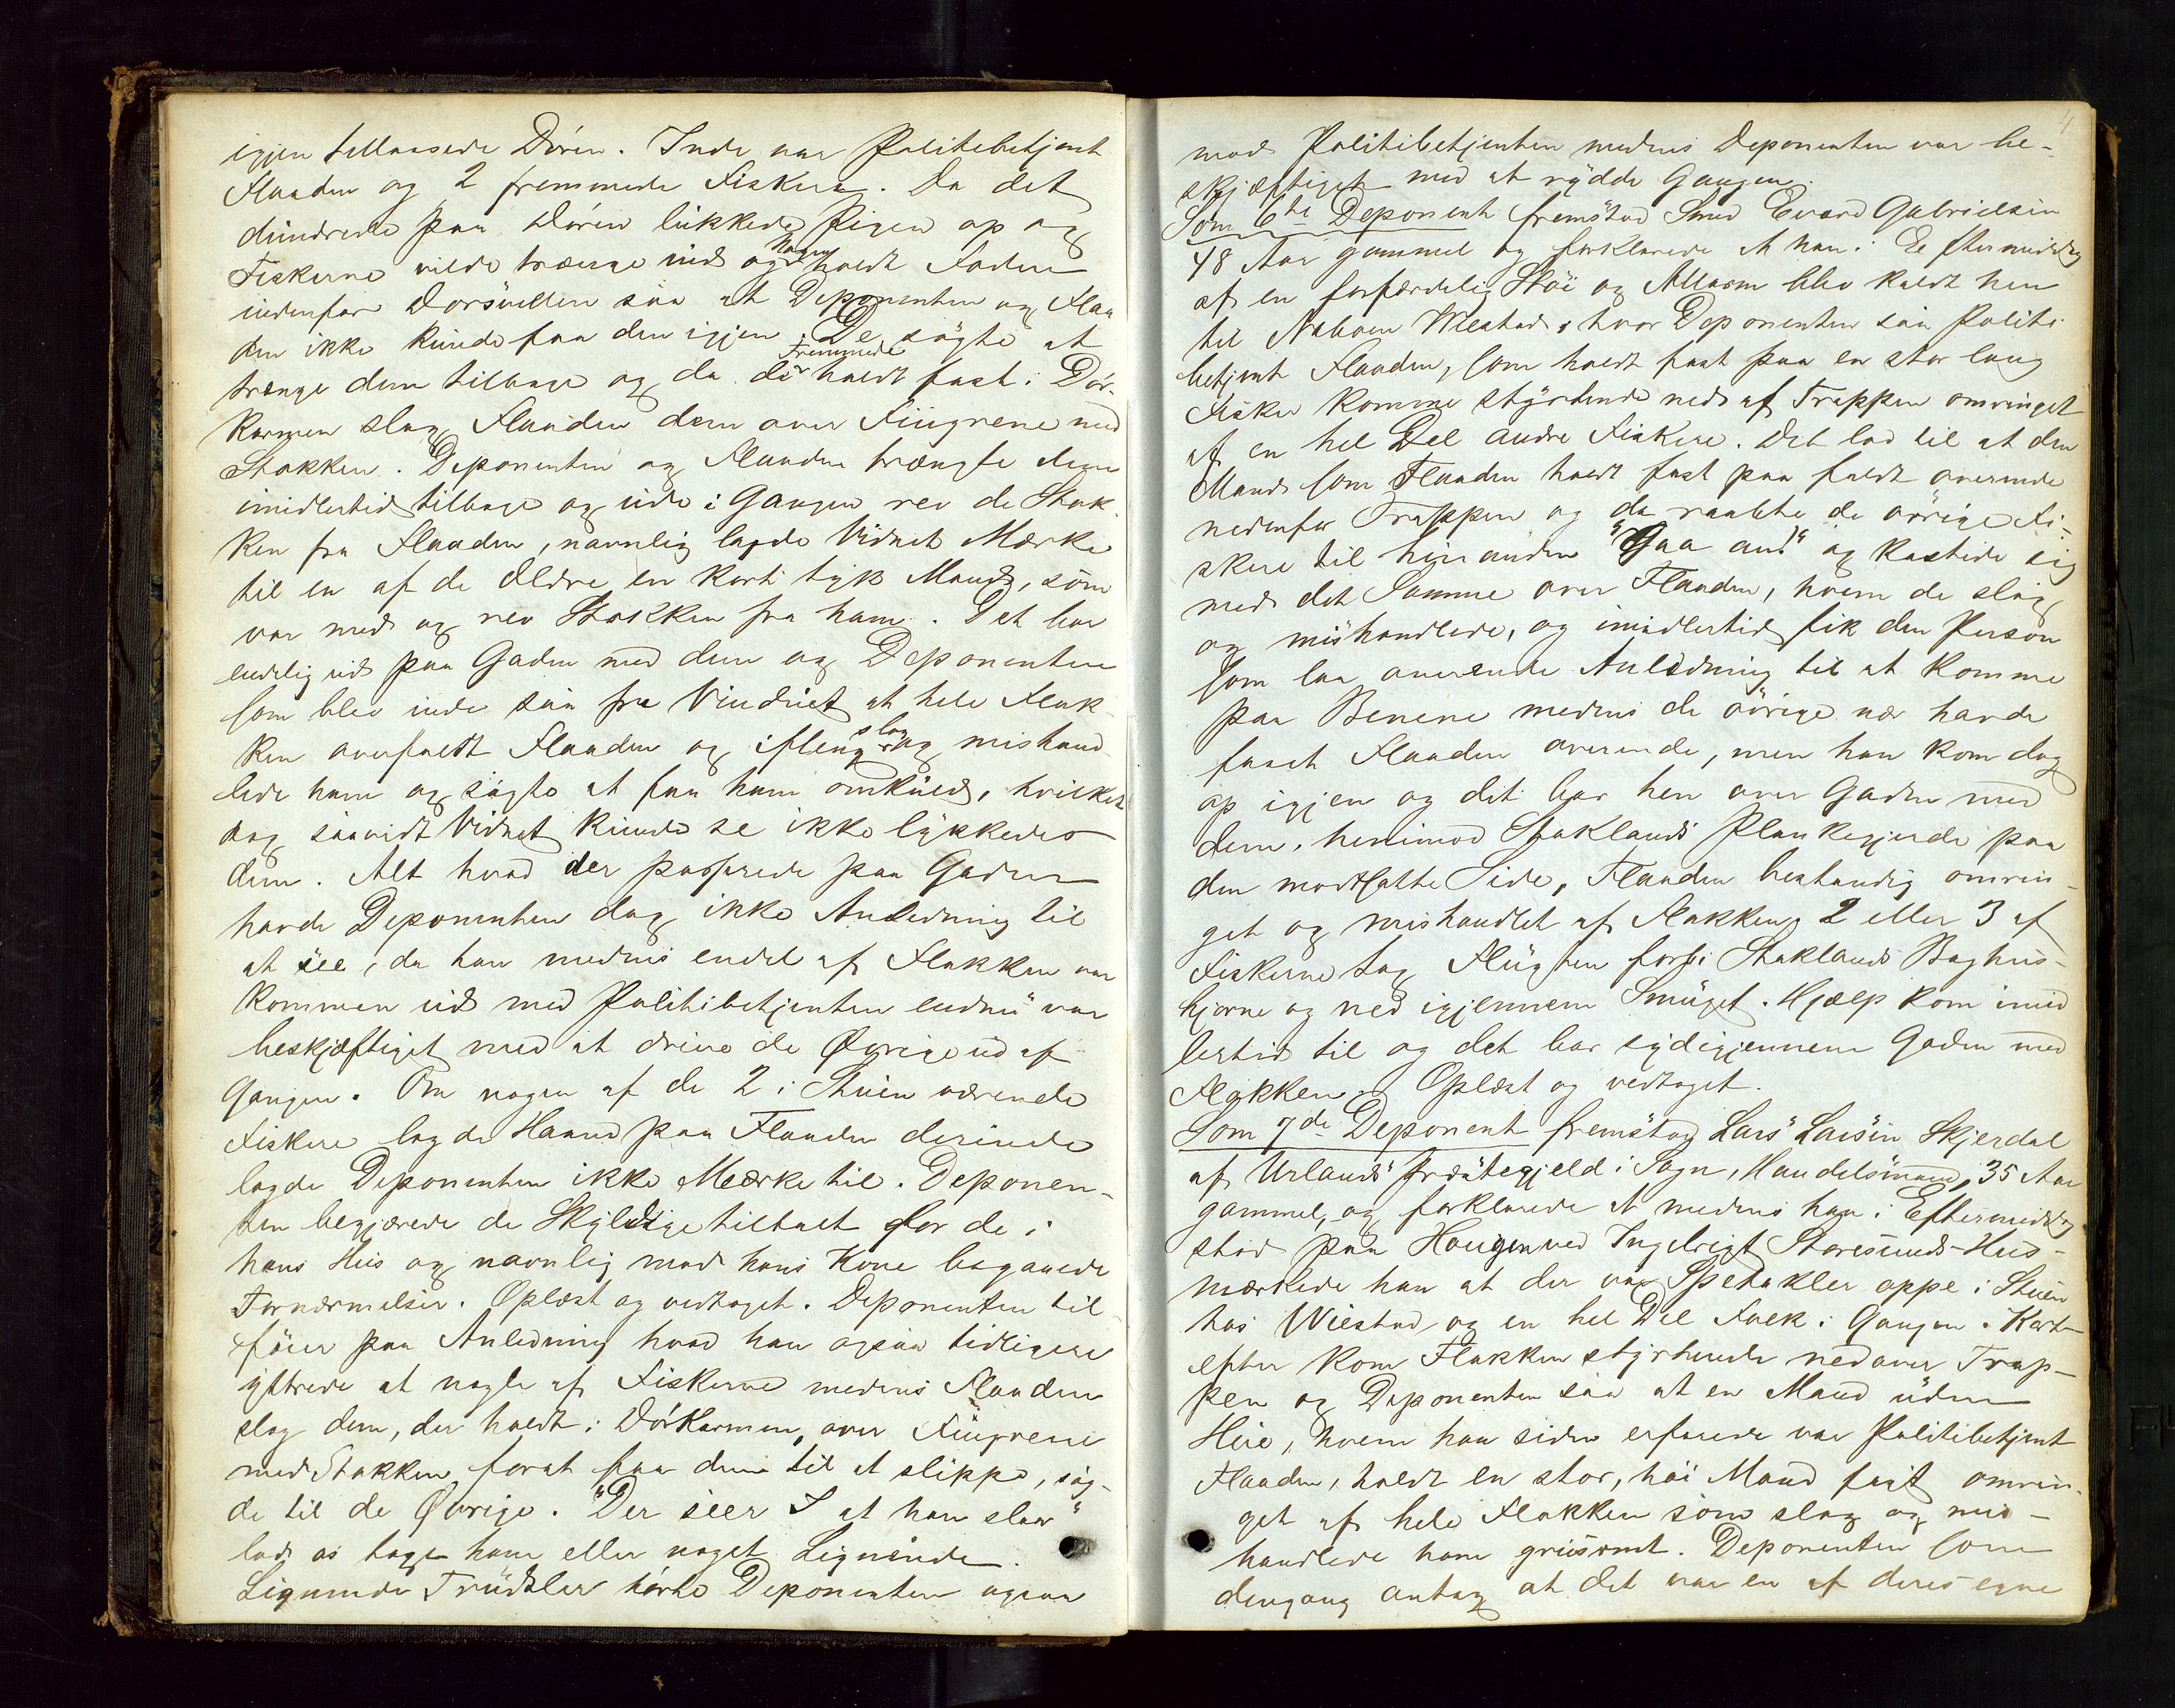 igjen tillaasede Dören. Inde var Politibetjent
Flaaden og 2 fremmede Fiskere. Da det
dundrede paa Dören lukkede Pigen op og
Fiskerne vilde trænge ind og Nogen holdt Foden
indenfor Dörsvillen saa at Deponenten og Flaa
den ikke kunde faa den igjen. De sögte at
trænge dem tilbage og da de Fremmede holdt fast i Dör-
karmen slog Flaaden dem over Fingrene med
Stokken. Deponenten og Flaaden trængte dem
imidlertid tilbage og ude i Gangen rev de Stok
ken fra Flaaden, navnlig lagde Vidnet Mærke
til en af de Ældre, en kort tyk Mand, som
var med og rev Stokken fra ham. Det bar
endelig ud paa Gaden med dem og Deponenten
som blev inde saa fra Vinduet at hele Flok
ken overfaldt Flaaden og ifleng slog og mishand
lede ham og sögte at faa ham omkuld, hvilket
dog saavidt Vidnet kunde se ikke lykkedes
dem. Alt hvad der passerede paa Gaden
havde Deponenten dog ikke Anledning til
at see, da han medens endel af Flokken var
kommen ud med Politibetjenten endnu var
beskjæftiget med at drive de Øvrige ud af
Gangen. Om nogen af de 2 i Stuen værende
Fiskere lagde Haand paa Flaaden derinde
lagde Deponenten ikke Mærke til. Deponen-
ten begjærede de Skyldige tiltalt for de i
hans Hus og navnlig mod hans Kone begaaede
Fornærmelser. Oplæst og vedtaget. Deponenten til
föier paa Anledning hvad han ogsaa tidligere
yttrede at nogle af Fiskerne medens Flaaden
slog dem, der holdt i Dörkarmen, over Fingrene
med Stokken forat faa dem til at slippe, sag-
de til de Øvrige. "Der seer I at han slaar"
lad os tage ham eller noget Lignende.
Lignende Trudsler hörte Deponenten ogsaa
4
mod Politibetjenten medens Deponenten var be-
skjæftiget med at rydde Gangen.
Som 6te Deponent fremstod Smed Evard Gabrielsen
48 Aar gammel og forklarede at han i Eftermiddag
af en forfærdelig Stöi og Allarm blev kaldt hen
til Naboen Wiestad, hvor Deponenten saa Politi
betjent Flaaden, som holdt fast paa en stor lang
Fisker komme styrtende ned af Trappen omringet
af en hel Del andre Fiskere. Det lod til at den
Mand som Flaaden holdt fast paa faldt overende
nedenfor Trappen og da raabte de övrige Fi-
skere til hinanden "Gaa an!" og kastede sig
med det Samme over Flaaden, hvem de slog
og mishandlede, og imidlertid fik den Person
som laa overende Anledning til at komme
paa Benene medens de övrige nær havde
faaet Flaaden overende, men han kom dog
op igjen og det bar hen over Gaden med
dem, henimod Staklands Plankegjerde paa
den modsatte Side, Flaaden bestandig omrin-
get og mishandlet af Flokken, 2 eller 3 af
Fiskerne tog Flugten forbi Staklands Baghus-
hjørne og ned igjennem Smuget. Hjælp kom imid
lertid til og det bar sydigjennem Gaden med
Flokken. Oplæst og vedtaget.
Som 7de Deponent fremstod Lars Larsen Skjerdal
af Urlands Præstegjeld i Sogn, Handelsmand, 35 Aar
gammel, og forklarede at medens han i Eftermiddag
stod paa Haugen ved Ingebrigt Storesunds Hus-
mærkede han at der var Spetakler oppe i Stuen
hos Wiestad, og en hel Del Folk i Gangen. Kort
efter kom Flokken styrtende nedover Trap-
pen og Deponenten saa at en Mand uden
Hue, hvem han siden erfarede var Politibetjent
Flaaden, holdt en stor, höi Mand fast omrin-
get af hele Flokken som slog og mis-
handlede ham grusomt. Deponenten som
dengang antog at det var en af deres egne